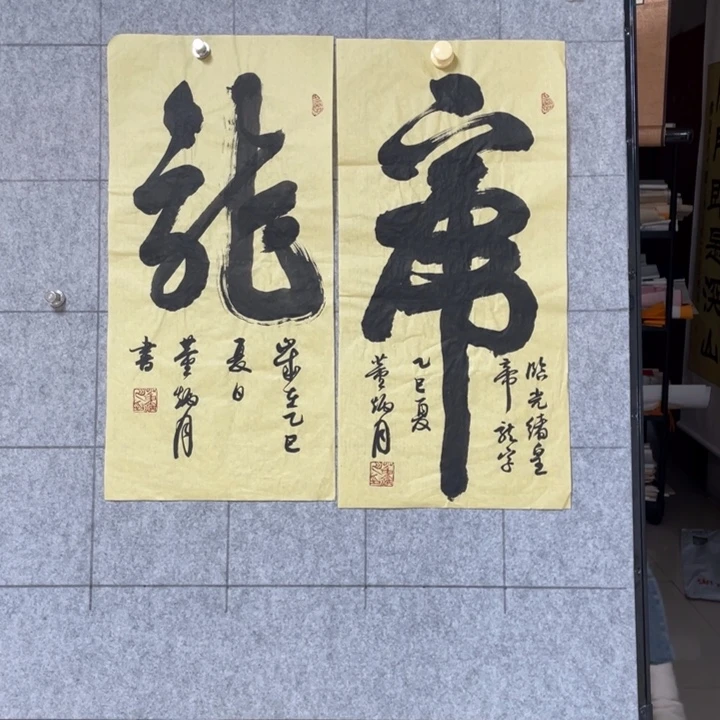 臨光绪皇
帝龙字
乙巳夏
董炳月
龍
歲在乙巳
夏日
董炳月
書